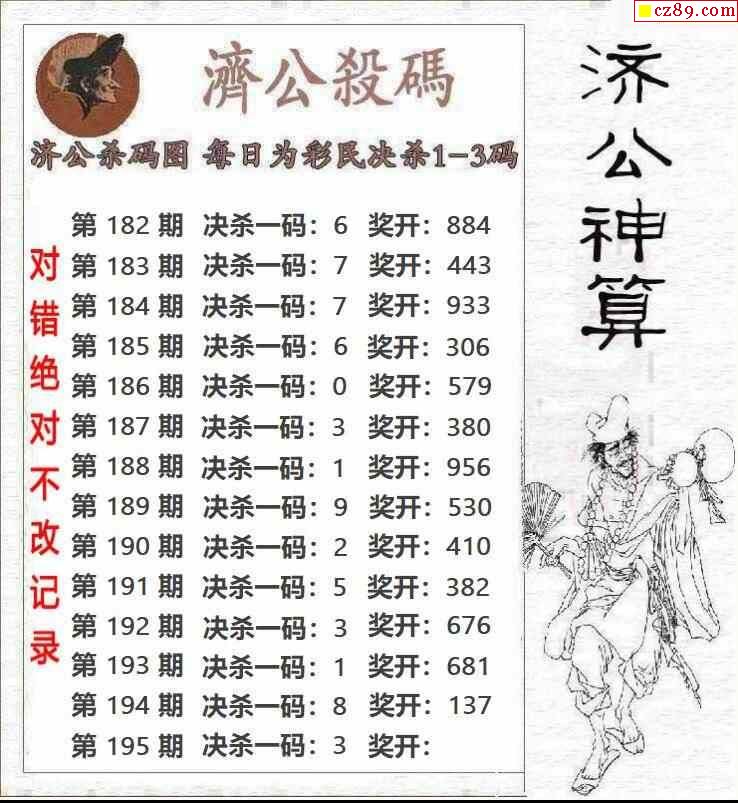 cz89.com
濟公殺碼
济公杀码图 每日为彩民决杀1-3码
第 182 期 决杀一码：6 奖开：884
第 183 期 决杀一码：7 奖开：443
第 184 期 决杀一码：7 奖开：933
第 185 期 决杀一码：6 奖开：306
第 186 期 决杀一码：0 奖开：579
第 187 期 决杀一码：3 奖开：380
第 188 期 决杀一码：1 奖开：956
第 189 期 决杀一码：9 奖开：530
第 190 期 决杀一码：2 奖开：410
第 191 期 决杀一码：5 奖开：382
第 192 期 决杀一码：3 奖开：676
第 193 期 决杀一码：1 奖开：681
第 194 期 决杀一码：8 奖开：137
第 195 期 决杀一码：3 奖开：
对错绝对不改记录
济公神算